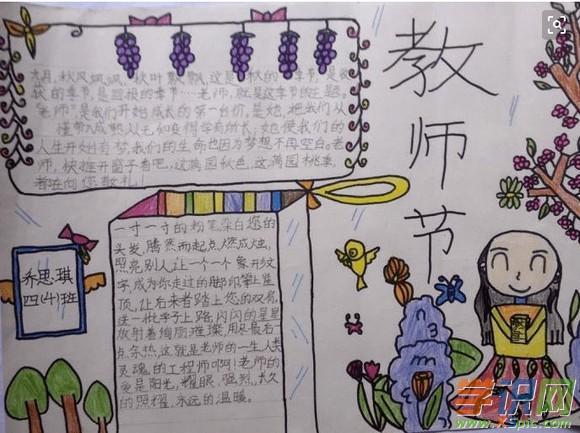 教师节
九月,秋风飒飒,秋叶飘飘,这是秋的季节,是收
获的季节,是回报的季节…老师,就是这季节的主题。
"老师"是我们开始成长的第一台阶,是她,把我们从
懵带入成熟从无知变得学有所长;她使我们的
人生开始有梦,我们的生命也因为梦想不再空白。老
师,快推开窗子看吧,这满园秋色,这满园桃李,
都在向您敬礼!
乔思琪
四(4)班
一寸一寸的粉笔,染白您的
头发,腾然而起点燃成烛,
照亮别人让一个一个象形文
字,成为你走过的脚印攀上崖
顶,让后来者踏上您的双肩,
送一批学子上路,闪闪的星星
放射着绚丽璀璨,用尽最后一
点余热,这就是老师的一生人类
灵魂的工程师啊!老师的
爱是阳光,耀眼,强烈,长久
的照耀,永远的温暖。
学识网
www.xspic.com